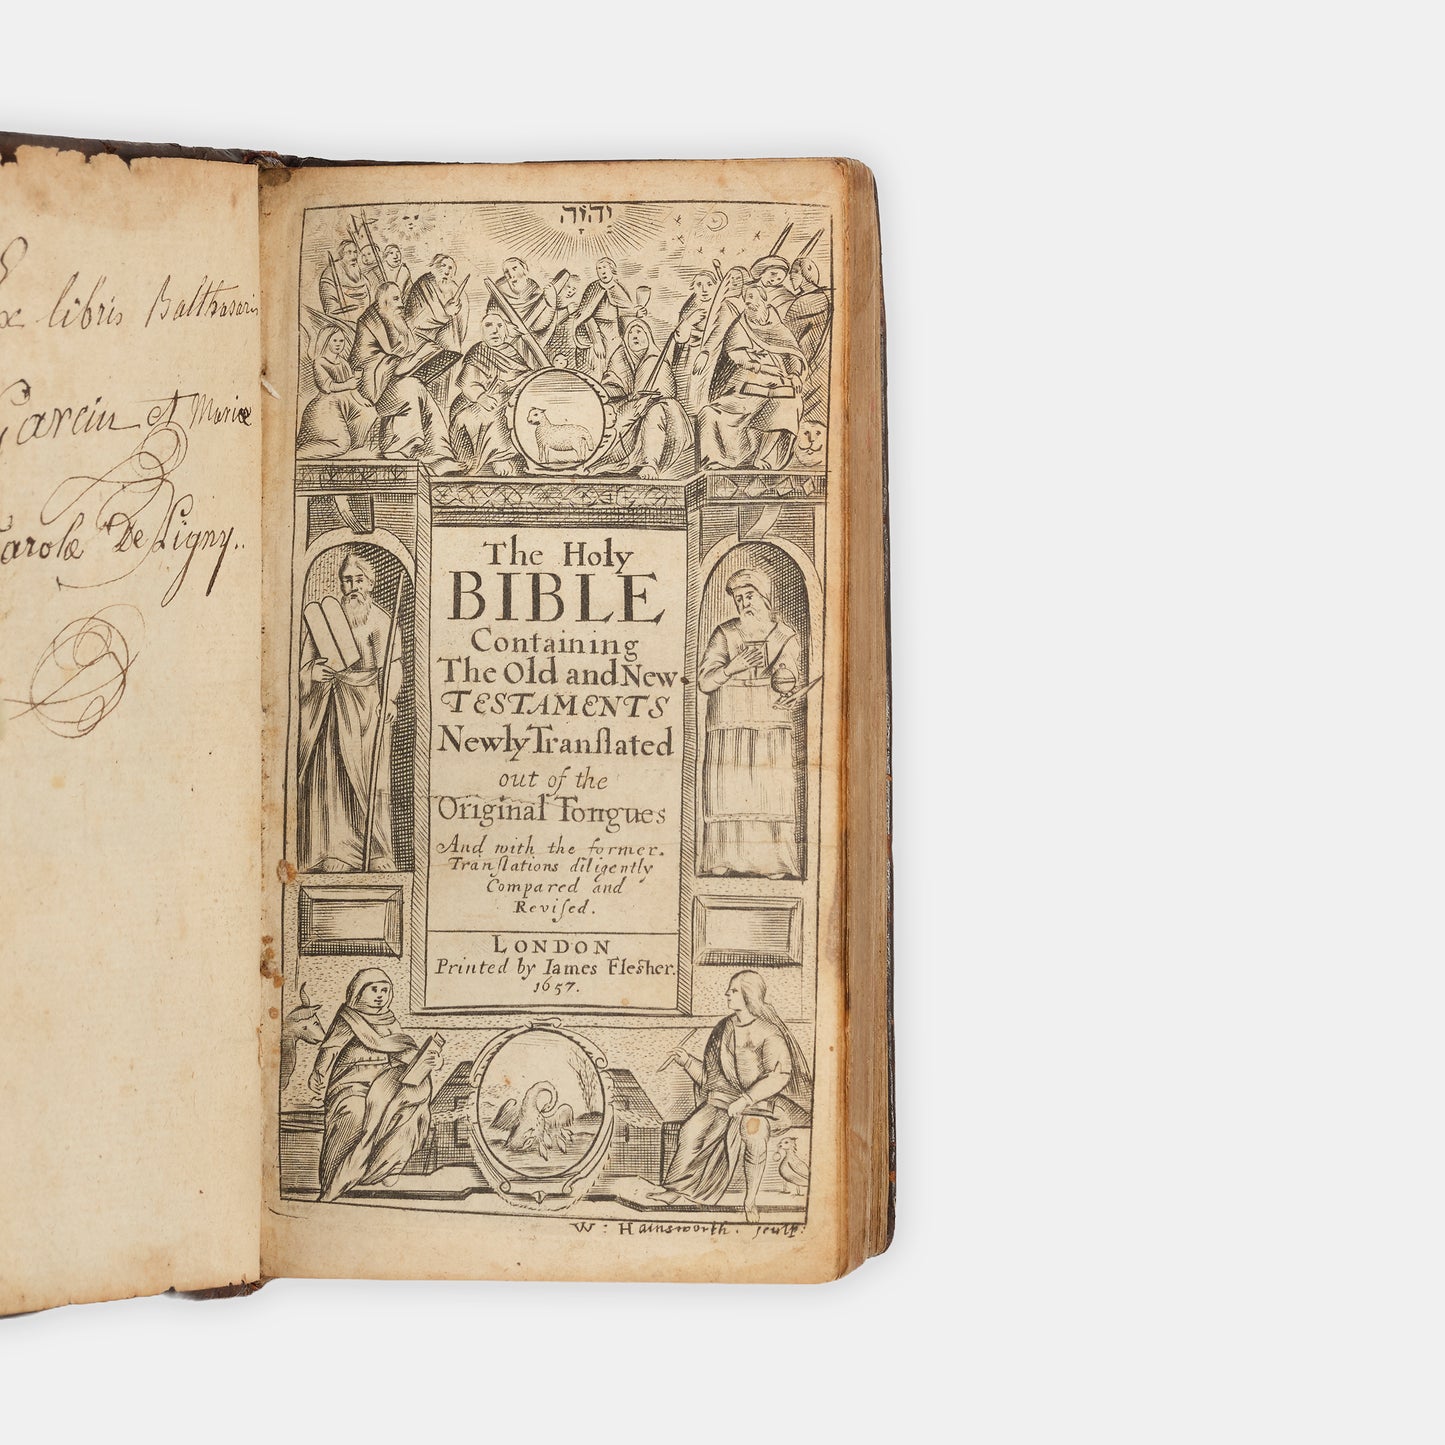 Ex libris Balthasaris
Garcin et Mariæ
Carolæ De Ligny..
יְהֹוָה
The Holy
BIBLE
Containing
The Old and New
TESTAMENTS
Newly Tranſlated
out of the
Original Tongues
And with the former.
Tranſlations diligently
Compared and
Reviſed.
LONDON
Printed by Iames Flesher.
1657.
W: Hainsworth. sculp: